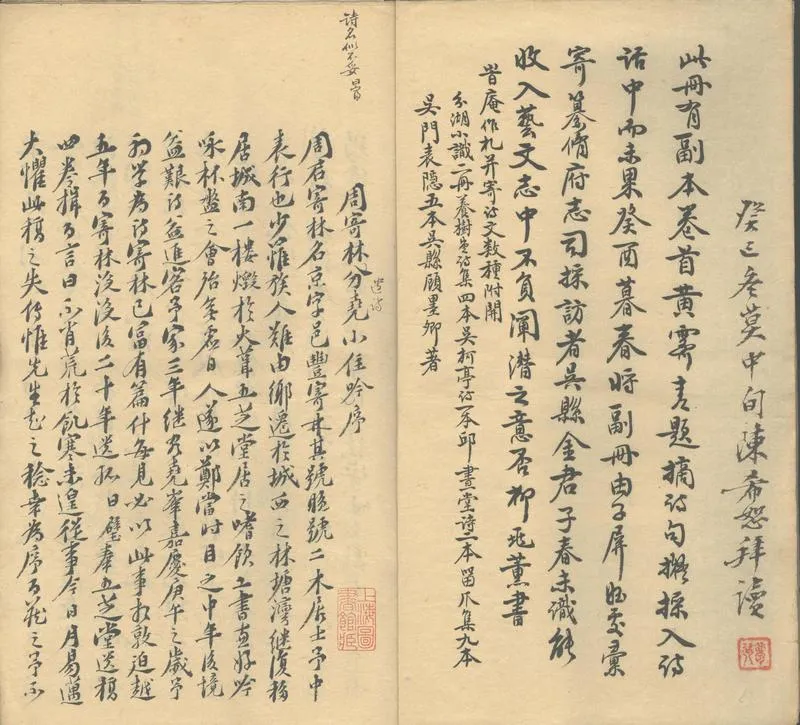 癸巳冬莫中旬陳希恕拜讀
此冊有副本卷首黃霽青題摘詩句擬採入詩
話中而未果癸酉暮春將副冊由子屏姪交彙
寄纂脩府志司採訪者吳縣金君子春未識能
收入藝文志中不負闡潛之意否柳兆薰書
昔庵作札并寄詩文數種附開
分湖小識二冊養樹堂詩集四本吳柯亭詩一本邱晝堂詩二本留爪集九本
吳門表隱五本吳縣顧墨卿著
詩名似不妥
周寄林堯小住吟序
遺詩
周君寄林名京字邑豐寄林其號晚號二木居士予中
表行也少罹族人難由鄉遷於城西之林塘灣繼復移
居城南一樓燬於火葺五芝堂居之嗜飲工書好吟
咏林盤之會殆無虛日人遂以鄭當時目之中年後境
益艱詩益進客予家三年繼客堯峯嘉慶庚午之歲予
初學為詩寄林已富有篇什每見必以此事相敦迫越
五年而寄林沒沒後二十年孤日璧奉五芝堂遺稿
四卷揖而言曰不肖荒於飢寒未遑從事今日月易邁
大懼此稿之失傳惟先生之稔幸為序而之予不
上海圖書館藏